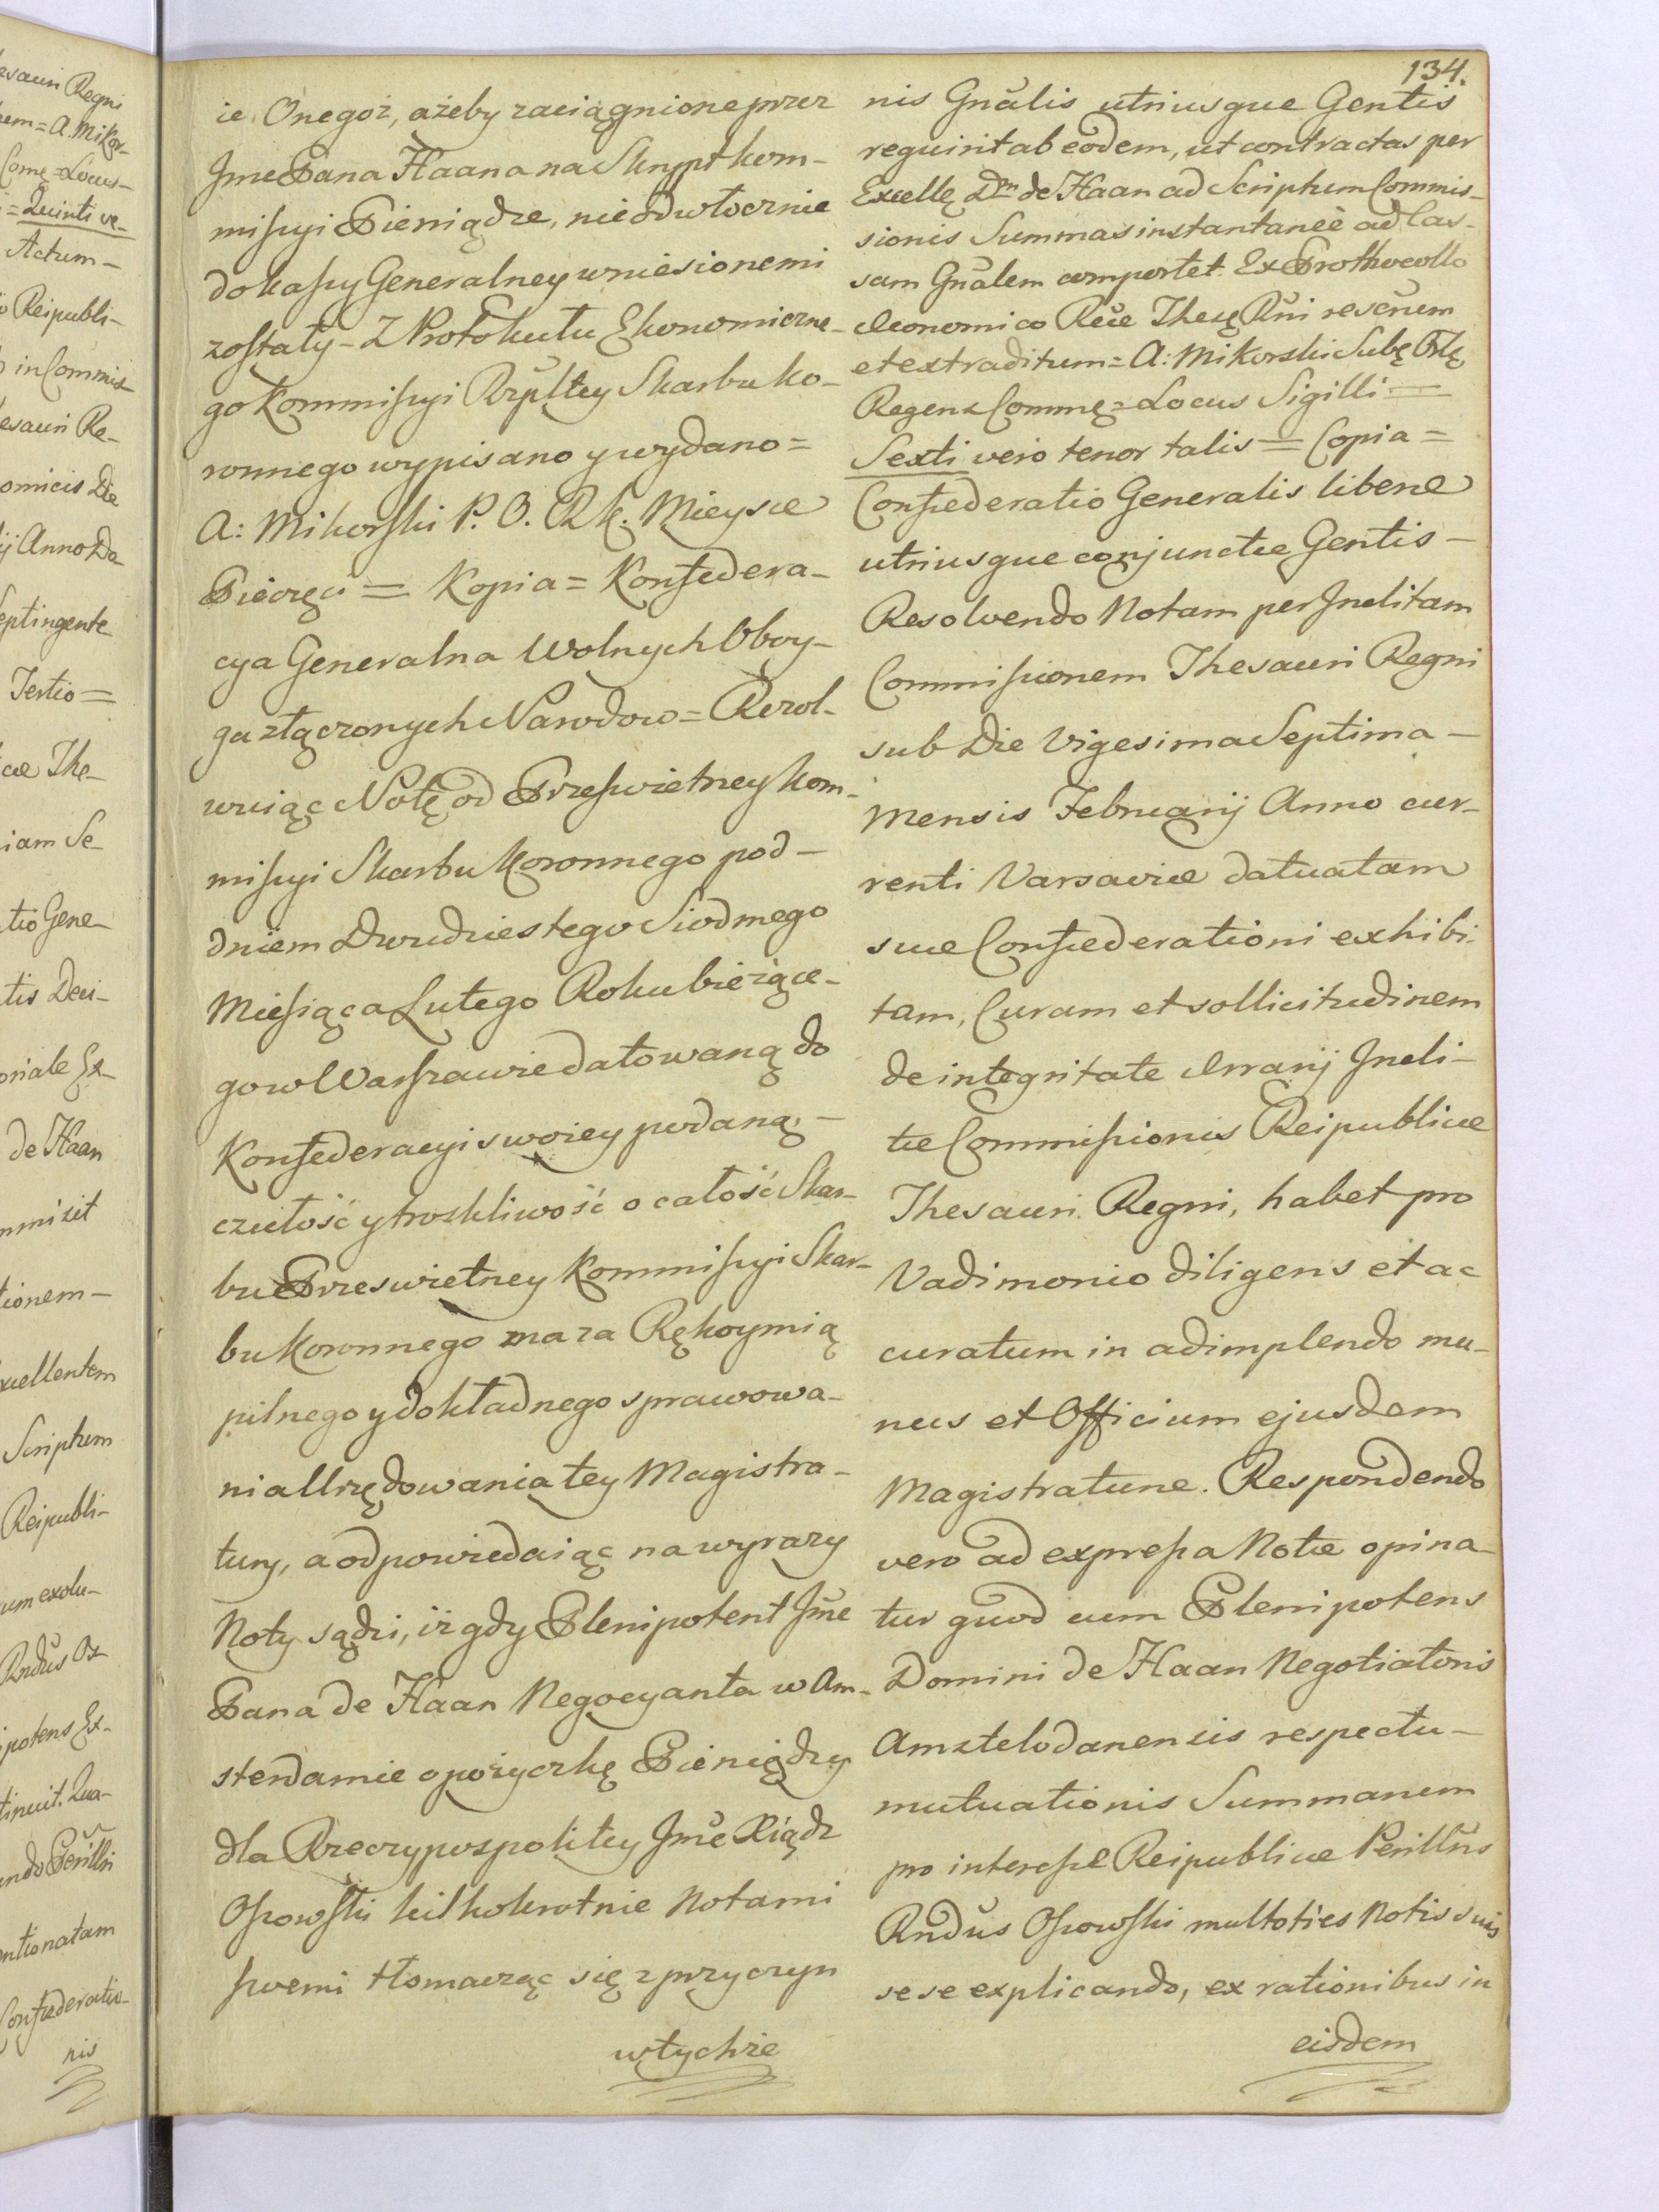 134.
ie Onegoż, ażeby zaciągnione przez
Jme Pana Haana na Skrypt kom-
missyi Pieniądze, nieodwłocznie
do kassy Generalney wniesionemi
zostały - Z Protokułu Ekonomiczne-
go kommissyi Rzpltey Skarbu ko-
ronnego wypisano y wydano =
A: Mikorski P. O. R. k. Mieysce
Pieczęci = Kopia = Konfedera-
cya Generalna Wolnych Oboy-
ga złączonych Narodow = Rezol-
wuiąc Notę od Przeswietney kom-
missyi Skarbu Koronnego pod -
dniem Dwudziestego Siodmego
Miesiąca Lutego Roku bieżące-
go w Warszawie datowaną do
Konfederacyi swoiey podaną, -
czułość y troskliwość o całość Skar-
bu Przeswietney Kommissyi Skar-
bu Koronnego ma za Rękoymią
pilnego y dokładnego sprawowa-
nia Urzędowania tey Magistra-
tury, a odpowiedaiąc na wyrazy
Noty sądzi, iż gdy Plenipotent Jme
Pana de Haan Negocyanta w Am-
sterdamie o pożyczkę Pieniędzy
dla Rzeczypospolitey Jme Xiądz
Ossowski kilkokrotnie Notami
swemi tłomacząc się z przyczyn
w tychże
nis Gnalis utriusque Gentis
requirit ab eodem, ut contractas per
Excellę Dm de Haan ad Scriptum Commis-
sionis Summas instantaneè ad Cas-
sam Gnalem comportet. Ex Prothocollo
Œconomico Rece Thesę Rni rescrum
et extraditum = A: Mikorski Subę Ozlę
Regens Commę = Locus Sigilli =
Sexti vero tenor talis = Copia =
Confœderatio Generalis liberæ
utriusque conjunctæ Gentis -
Resolvendo Notam per Inclitam
Commissionem Thesauri Regni
sub Die Vigesima Septima -
Mensis Februarij Anno cur-
renti Varsaviæ datuatam
suæ Confœderationi exhibi-
tam, Curam et sollicitudinem
de integritate Ærarij Incli-
tæ Commissionis Reipublicæ
Thesauri Regni, habet pro
Vadimonio diligens et ac
curatum in adimplendo mu-
nus et Officium ejusdem
Magistraturæ. Respondendo
vero ad expressa Notæ opina-
tur quod cum Plenipotens
Domini de Haan Negotiatoris
Amstelodanensis respectu -
mutuationis Summarum
pro interesse Reipublicæ Perillris
Rndus Ossowski multoties Notis suis
sese explicando, ex rationibus in
eisdem